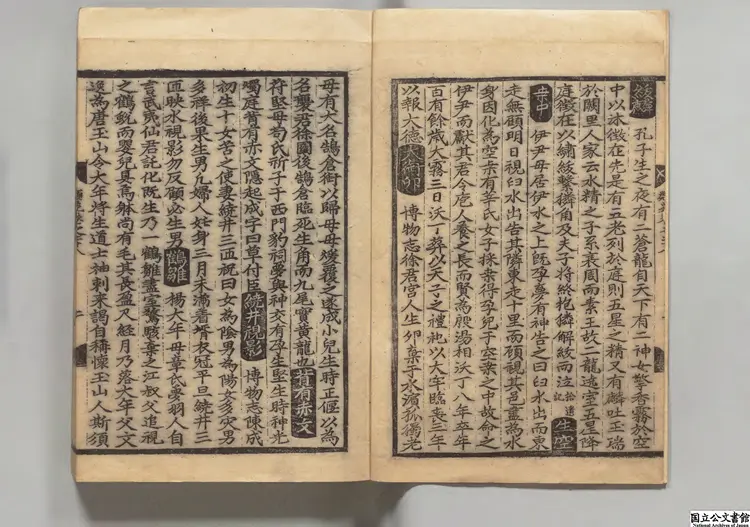 紱麟 孔子生之夜有二蒼龍自天下有二神女擎香霧於空
中以沐徵在先是有五老列於庭則五星之精又有麟吐玉瑞
於闕里人家云水精之子系衰周而素王故二龍遶室五星降
庭徵在以繡紱繫麟角及夫子將終抱麟解紱而泣 拾遺記 生空
桑中 伊尹母居伊水之上既孕夢有神告之曰臼水出而東
走無顧明日視臼水出告其隣東走十里而顧視其邑盡為水
身因化為空桑有莘氏女子採桑得孕兒于空桑之中故命之
伊尹而獻其君令庖人養之長而賢為殷湯相沃丁八年卒年
百有餘歲大霧三日沃丁葬以天子之禮祀以大牢臨喪三年
以報大德 犬銜卵 博物志徐君宮人生卵棄于水濱孤獨老
母有犬名鵠倉銜以歸母母煖覆之遂成小兒生時正偃以為
名襲君徐國後鵠倉臨死生角而九尾實黃龍也 背有赤文
符堅母苟氏祈子于西門豹祠夢與神交有孕生堅生時神光
燭庭背有赤文隱起成字曰草付臣 繞井視影 博物志陳成
初生十女苦之使妻繞井三匝祝曰女為陰男為陽女多災男
多祥後果生男九婦人妊身三月未滿着壻衣冠平旦繞井三
匝映水視影勿反顧必生男 鶴雛 楊大年母章氏夢羽人自
言武夷仙君託化既生乃一鶴雛盡室驚駭棄之江叔父追視
之鶴蛻而嬰兒具焉躰尚有毛其長盈尺經月乃落大年父文
逸為唐玉山令大年將生道士袖刺來謁自稱懷玉山人斯須
国立公文書館
National Archives of Japan